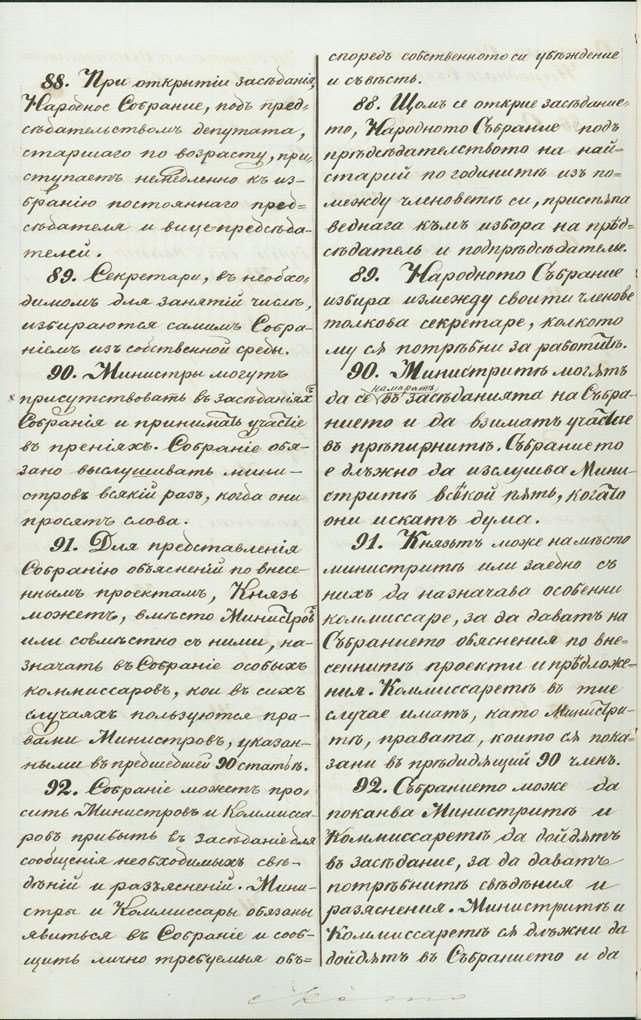 88. При открытіи засѣданія,
Народное Собраніе, подъ пред-
сѣдательствомъ депутата,
старшаго по возрасту, при-
ступаетъ немедленно къ из-
бранію постояннаго пред-
сѣдателя и вицепредсѣда-
телей.
89. Секретари, въ необхо-
димомъ для занятій числѣ,
избираются самимъ Собра-
ніемъ изъ собственной среды.
90. Министры могутъ
присутствовать въ засѣданіяхъ
Собранія и принимать участіе
въ преніяхъ. Собраніе обя-
зано выслушивать мини-
стровъ всякій разъ, когда они
просятъ слова.
91. Для представленія
Собранію объясненій по внесе-
ннымъ проектамъ, Князь
можетъ, вмѣсто Министровъ
или совмѣстно съ ними, на-
значать въ Собраніе особыхъ
коммиссаровъ, кои въ сихъ
случаяхъ пользуются пра-
вами Министровъ, указан-
ными въ предшедшей 90 статьѣ.
92. Собраніе можетъ про-
сить Министровъ и Коммисса-
ровъ прибыть въ засѣданіе для
сообщенія необходимыхъ свѣ-
дѣній и разъясненій. Мини-
стры и Коммиссары обязаны
явиться въ Собраніе и сооб-
щить лично требуемыя объ-
споредъ собственното си убѣждение
и съвѣсть.
88. Щомъ се открие засѣдание-
то, Народното Събрание подъ
прѣдсѣдателството на най-
старий по годинитѣ изъ по-
между членоветѣ си, пристѫпа
веднага къмъ избора на прѣд-
сѣдатель и подпрѣдсѣдателье.
89. Народното Събрание
избира измежду своити членове
толкова секретаре, колкото
му сѫ потрѣбни за работитѣ.
90. Министритѣ могѫтъ
да се намиратъ въ засѣданията на Събра-
нието и да взиматъ участие
въ прѣпирнитѣ. Събранието
е длъжно да изслушва Мини-
стритѣ всѣкой пѫть, когато
они искатъ дума.
91. Князьтъ може намѣсто
министритѣ или заедно съ
нихъ да назначава особенни
коммиссаре, за да даватъ на
Събранието обяснения по вне-
сеннитѣ проекти и прѣдложе-
ния. Коммиссаретѣ въ тие
случае иматъ, като Министри-
тѣ, правата, които сѫ пока-
зани въ прѣдидящий 90 членъ.
92. Събранието може да
поканва Министритѣ и
Коммиссаретѣ да дойдѫтъ
въ засѣдание, за да даватъ
потрѣбнитѣ свѣдѣния и
разяснения. Министритѣ и
Коммиссаретѣ сѫ длъжни да
дойдѫтъ въ Събранието и да